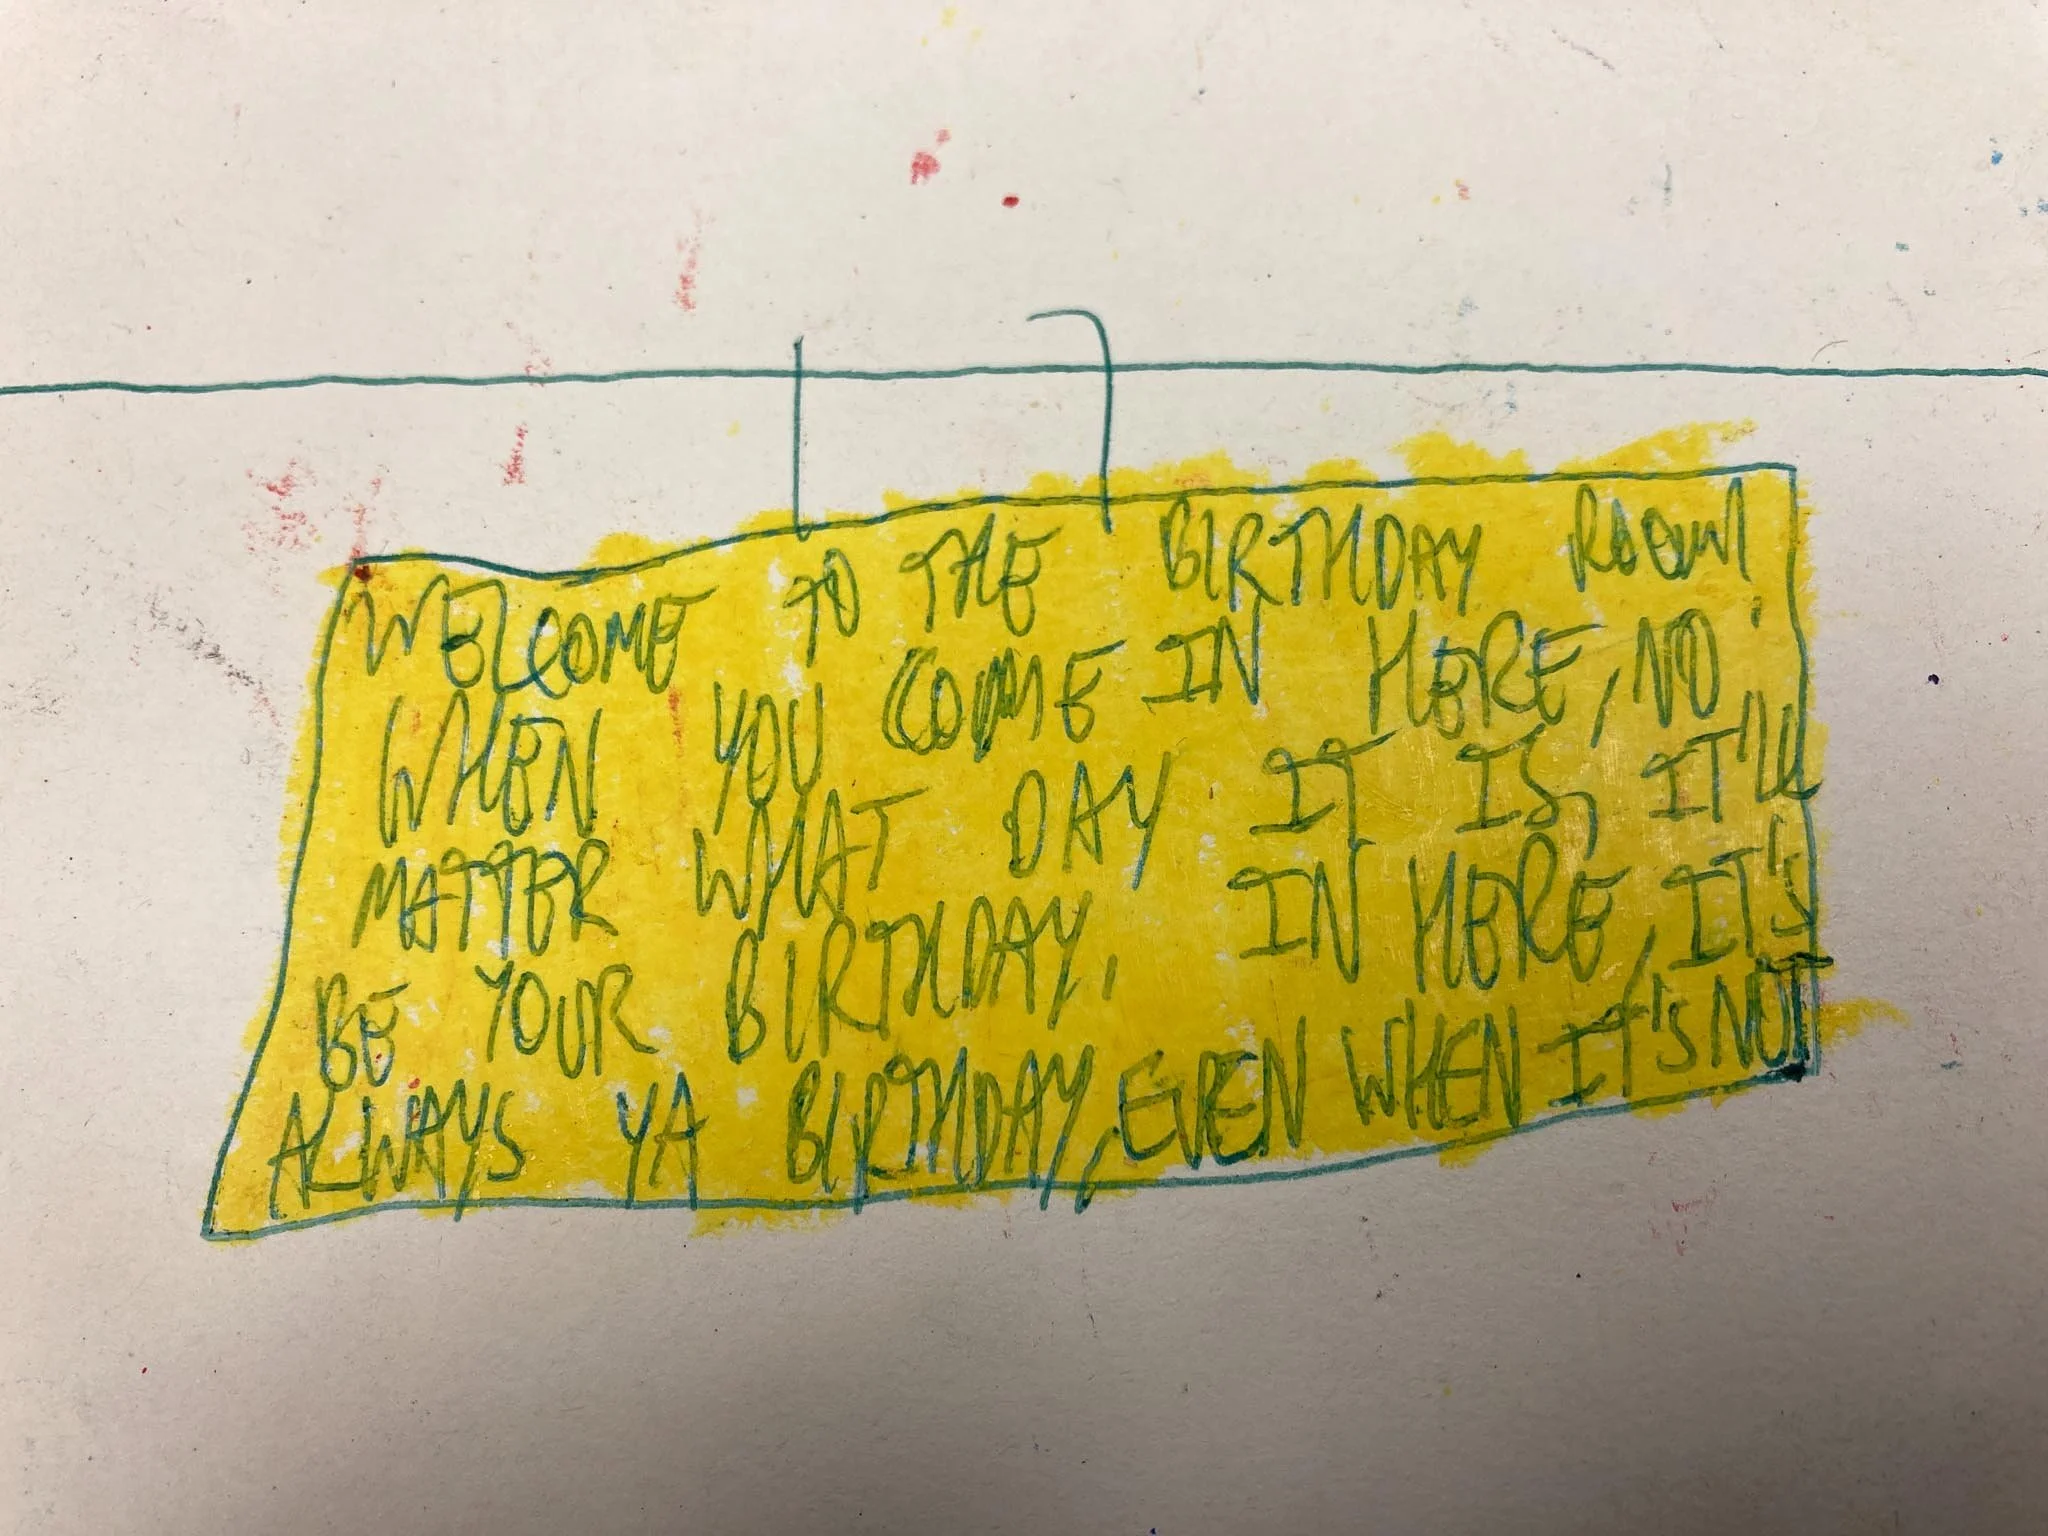 WELCOME TO THE BIRTHDAY ROOM!
WHEN YOU COME IN HERE, NO
MATTER WHAT DAY IT IS, IT'LL
BE YOUR BIRTHDAY. IN HERE, IT'S
ALWAYS YA BIRTHDAY, EVEN WHEN IT'S NOT